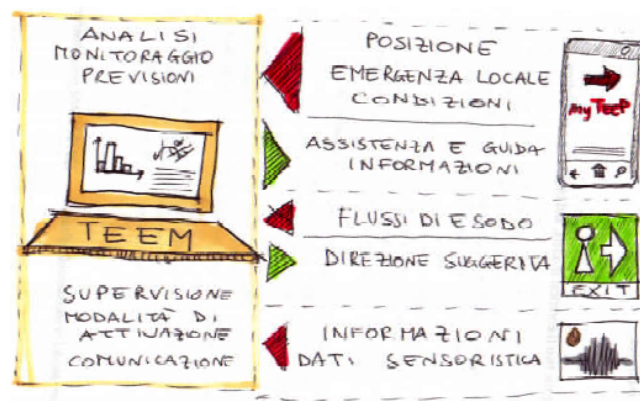 ANALISI
MONITORAGGIO
PREVISIONI
TEEM
SUPERVISIONE
MODALITÀ DI
ATTIVAZIONE
COMUNICAZIONE
POSIZIONE
EMERGENZA LOCALE
CONDIZIONI
ASSISTENZA E GUIDA
INFORMAZIONI
FLUSSI DI ESODO
DIREZIONE SUGGERITA
INFORMAZIONI
DATI SENSORISTICA
myTEEP
EXIT